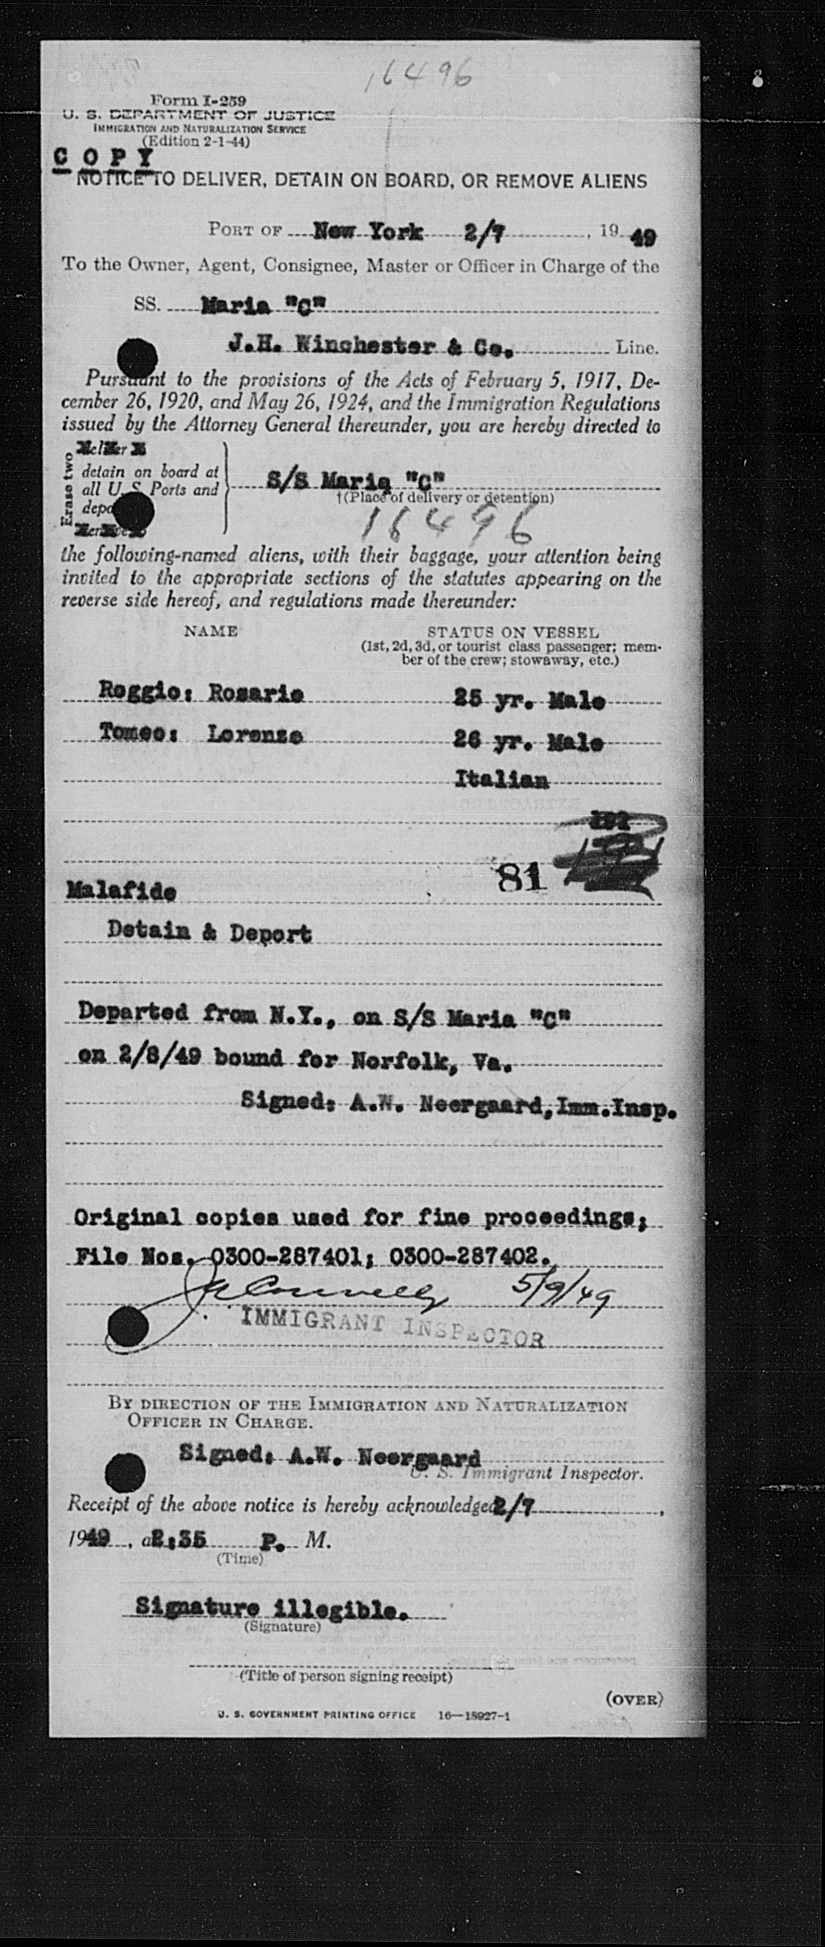 16496
Form I-259
U. S. DEPARTMENT OF JUSTICE
IMMIGRATION AND NATURALIZATION SERVICE
(Edition 2-1-44)
COPY
NOTICE TO DELIVER, DETAIN ON BOARD, OR REMOVE ALIENS
PORT OF New York 2/7, 1949
To the Owner, Agent, Consignee, Master or Officer in Charge of the
SS. Maria "C"
J.H. Winchester & Co. Line.
Pursuant to the provisions of the Acts of February 5, 1917, De-
cember 26, 1920, and May 26, 1924, and the Immigration Regulations
issued by the Attorney General thereunder, you are hereby directed to
Erase two
detain on board at
all U. S. Ports and
S/S Maria "C"
†(Place of delivery or detention)
16496
the following-named aliens, with their baggage, your attention being
invited to the appropriate sections of the statutes appearing on the
reverse side hereof, and regulations made thereunder:
NAME STATUS ON VESSEL
(1st, 2d, 3d, or tourist class passenger; mem-
ber of the crew; stowaway, etc.)
Roggio: Rosario 25 yr. Male
Tomeo: Lorenzo 26 yr. Male
Italian
81
Malafide
Detain & Deport
Departed from N.Y., on S/S Maria "C"
on 2/8/49 bound for Norfolk, Va.
Signed: A.W. Neergaard, Imm.Insp.
Original copies used for fine proceedings;
File Nos. 0300-287401; 0300-287402.
5/9/49
IMMIGRANT INSPECTOR
BY DIRECTION OF THE IMMIGRATION AND NATURALIZATION
OFFICER IN CHARGE.
Signed: A.W. Neergaard
U. S. Immigrant Inspector.
Receipt of the above notice is hereby acknowledged 2/7,
1949, at 2:35 P. M.
(Time)
Signature illegible.
(Signature)
(Title of person signing receipt)
(OVER)
U. S. GOVERNMENT PRINTING OFFICE 16—18927-1